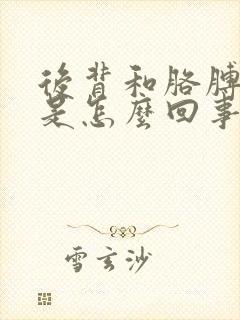 後背和胳膊
是怎麼回事
雪玄沙